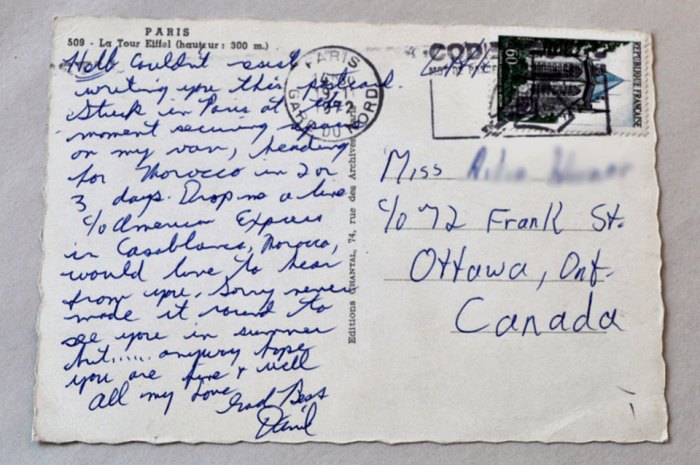 PARIS
509 - La Tour Eiffel (hauteur : 300 m.)
Hello Couldn't resist
writing you this postcard.
Stuck in Paris at the
moment securing spares
on my van, heading
for Morocco in 2 or
3 days. Drop me a line
c/o American Express
in Casablanca, Morocco,
would love to hear
from you. Sorry never
made it round to
see you in summer
but..... anyway hope
you are fine & well
all my love
God Bless
Editions CHANTAL, 74, rue des Archives
PARIS
GARE DU NORD
REPUBLIQUE FRANCAISE
Miss
c/o 72 Frank St.
Ottawa, Ont.
Canada